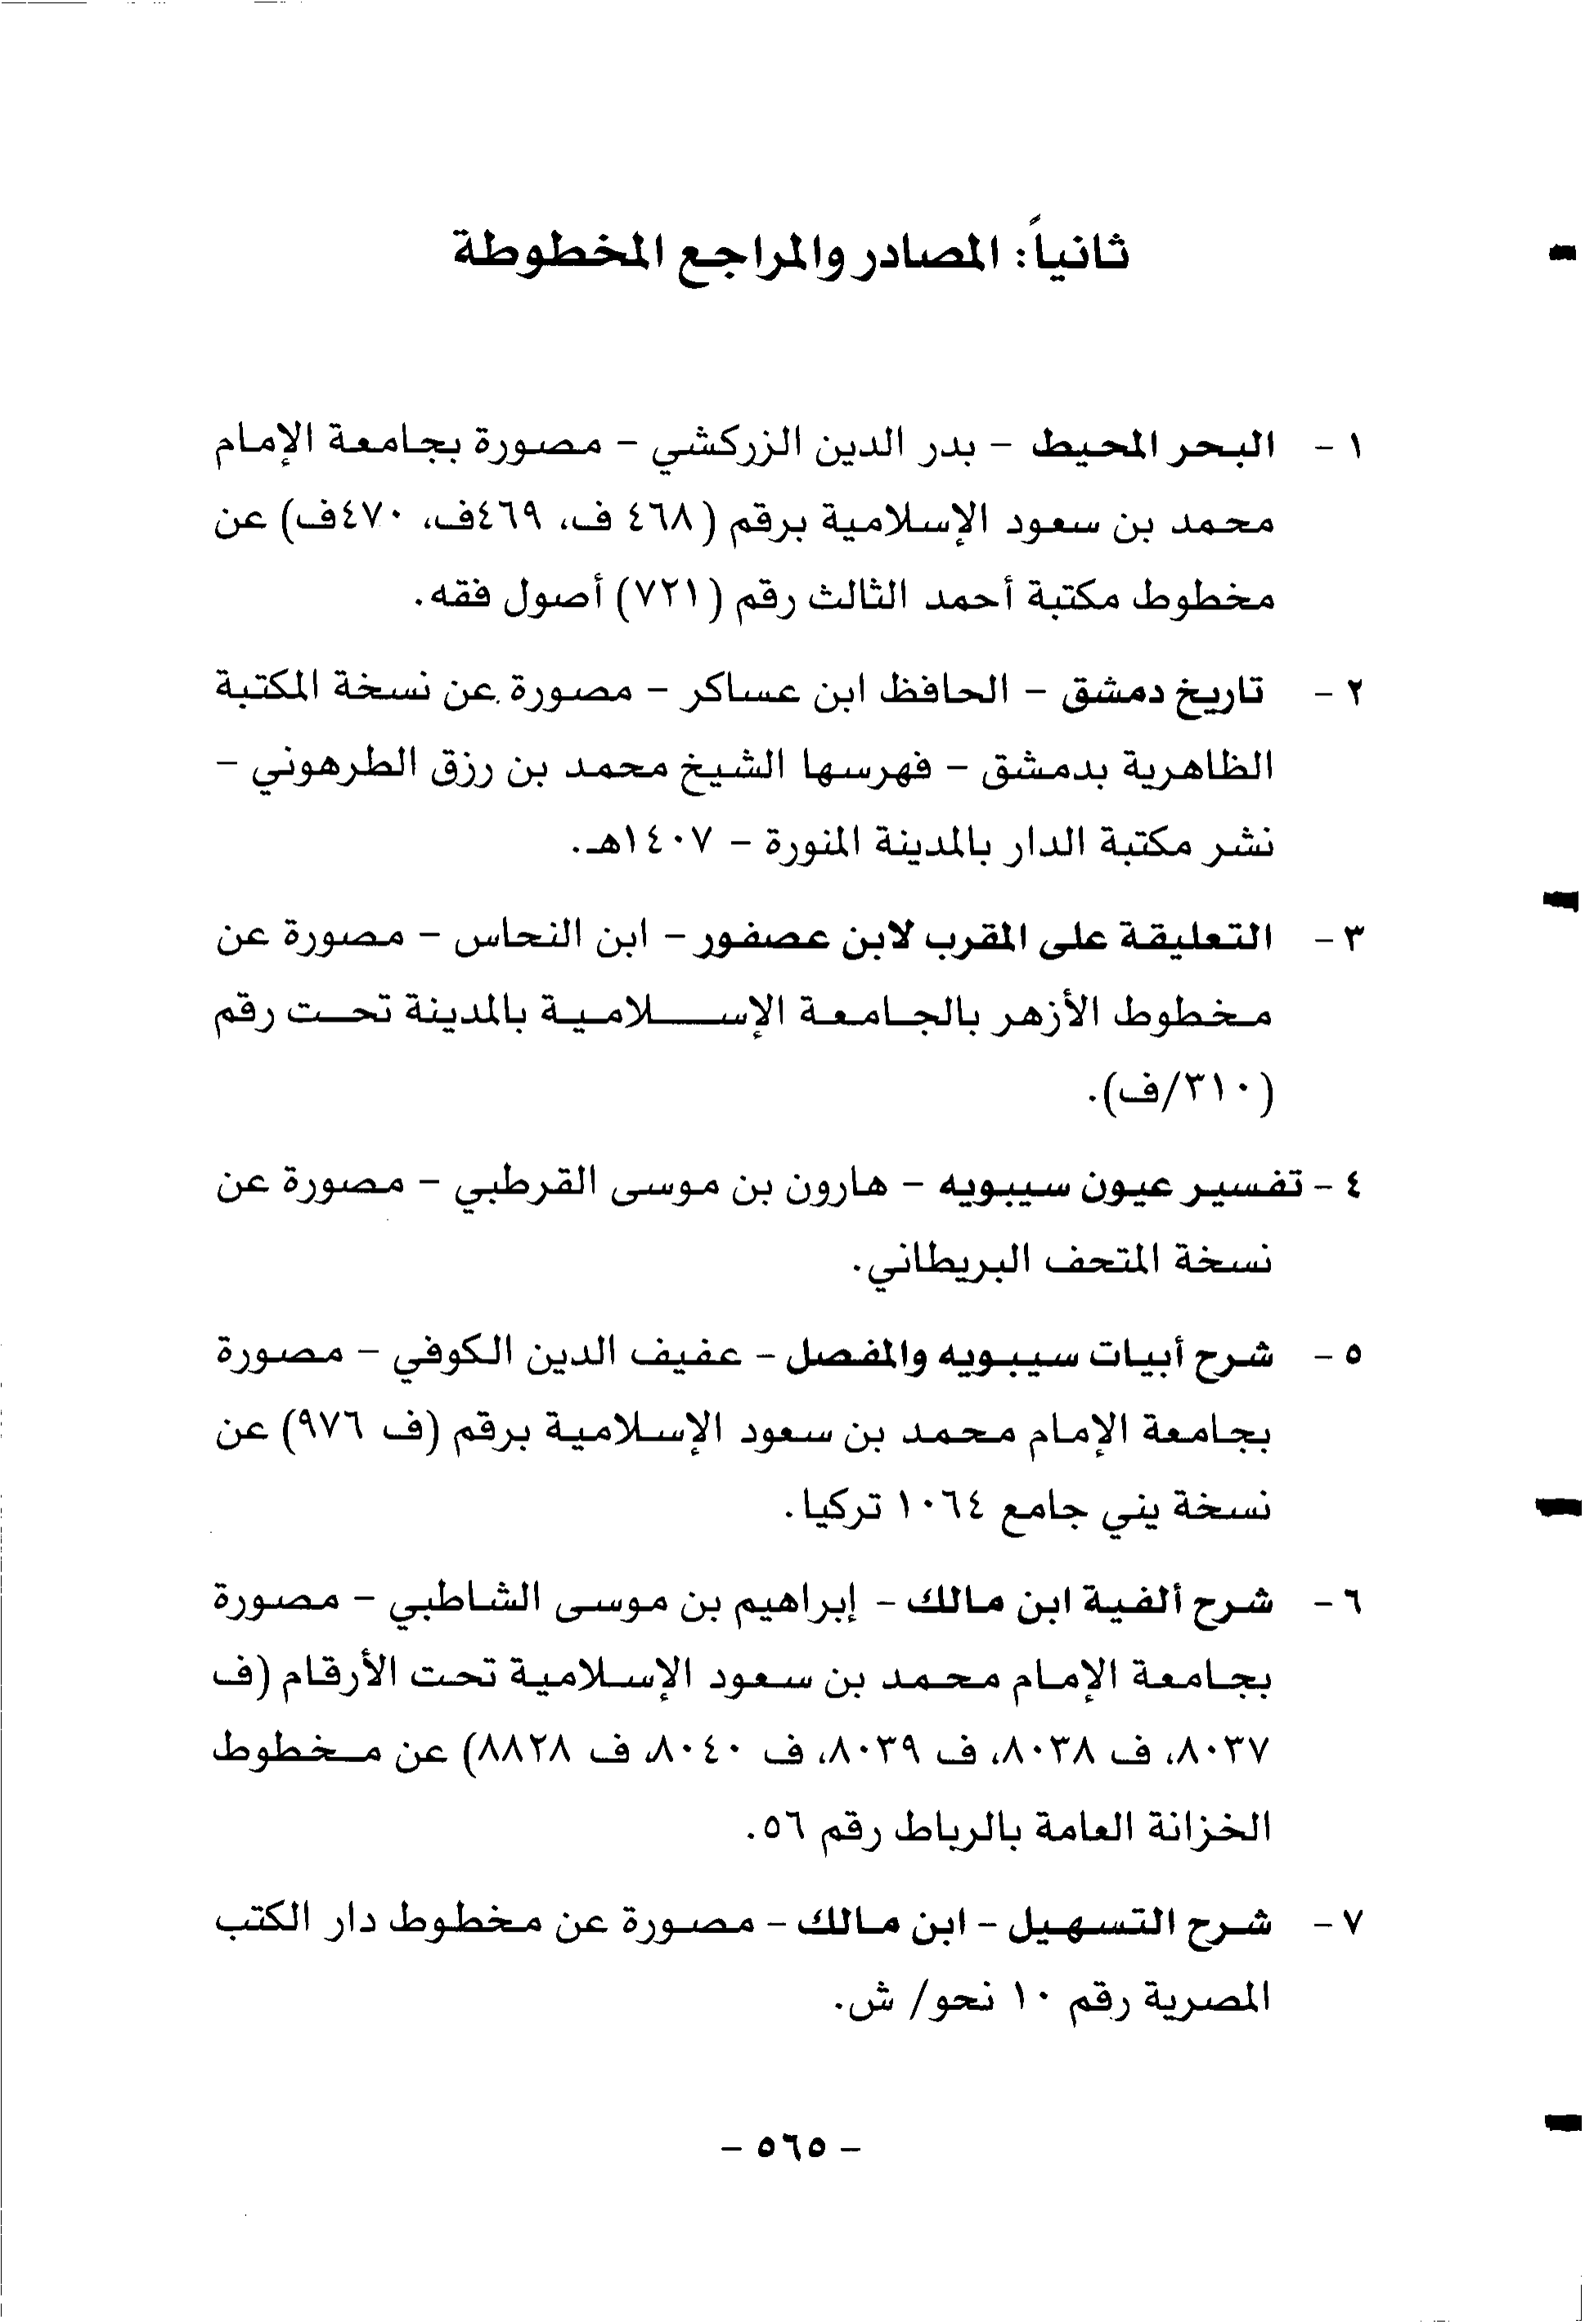 ثانياً: المصادر والمراجع المخطوطة
١ - البحر المحيط - بدر الدين الزركشي - مصورة بجامعة الإمام
محمد بن سعود الإسلامية برقم (٤٦٨ ف، ٤٦٩ف، ٤٧٠ف) عن
مخطوط مكتبة أحمد الثالث رقم (٧٢١) أصول فقه.
٢ - تاريخ دمشق - الحافظ ابن عساكر - مصورة عن نسخة المكتبة
الظاهرية بدمشق - فهرسها الشيخ محمد بن رزق الطرهوني -
نشر مكتبة الدار بالمدينة المنورة - ١٤٠٧هـ.
٣ - التعليقة على المقرب لابن عصفور - ابن النحاس - مصورة عن
مخطوط الأزهر بالجامعة الإسلامية بالمدينة تحت رقم
(٣١٠/ف).
٤ - تفسير عيون سيبويه - هارون بن موسى القرطبي - مصورة عن
نسخة المتحف البريطاني.
٥ - شرح أبيات سيبويه والمفصل - عفيف الدين الكوفي - مصورة
بجامعة الإمام محمد بن سعود الإسلامية برقم (ف ٩٧٦) عن
نسخة يني جامع ١٠٦٤ تركيا.
٦ - شرح ألفية ابن مالك - إبراهيم بن موسى الشاطبي - مصورة
بجامعة الإمام محمد بن سعود الإسلامية تحت الأرقام (ف
٨٠٣٧، ف ٨٠٣٨، ف ٨٠٣٩، ف ٨٠٤٠، ف ٨٨٢٨) عن مخطوط
الخزانة العامة بالرباط رقم ٥٦.
٧ - شرح التسهيل - ابن مالك - مصورة عن مخطوط دار الكتب
المصرية رقم ١٠ نحو/ ش.
- ٥٦٥ -